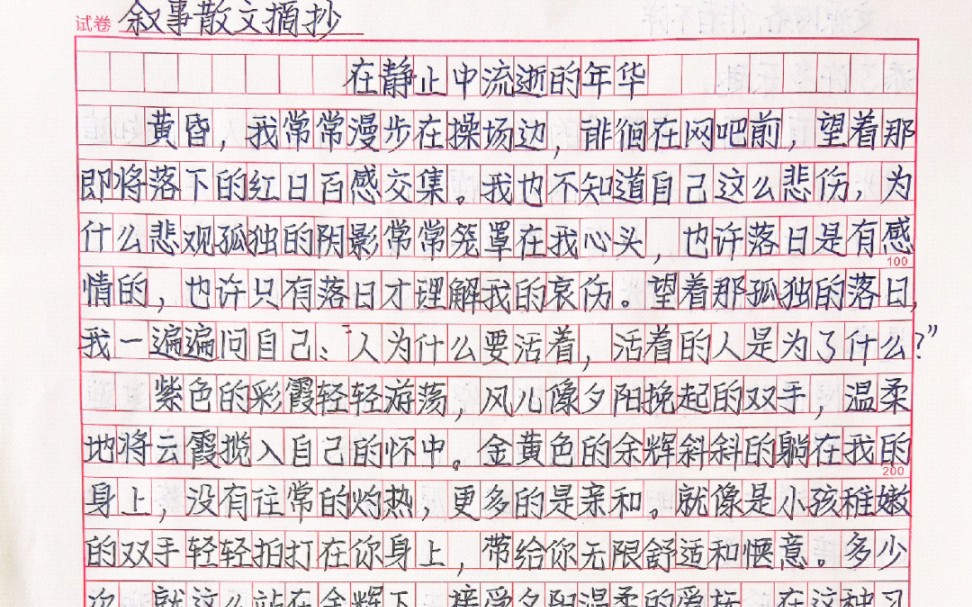 试卷 叙事散文摘抄
在静止中流逝的年华
黄昏，我常常漫步在操场边，徘徊在网吧前，望着那
即将落下的红日百感交集。我也不知道自己这么悲伤，为
什么悲观孤独的阴影常常笼罩在我心头，也许落日是有感
100
情的，也许只有落日才理解我的哀伤。望着那孤独的落日，
我一遍遍问自己：“人为什么要活着，活着的人是为了什么？”
紫色的彩霞轻轻游荡，风儿像夕阳挽起的双手，温柔
地将云霞揽入自己的怀中。金黄色的余辉斜斜的躺在我的
200
身上，没有往常的灼热，更多的是亲和。就像是小孩稚嫩
的双手轻轻拍打在你身上，带给你无限舒适和惬意。多少
次，就这么站在金辉下，接受夕阳温柔的爱抚，在这种习